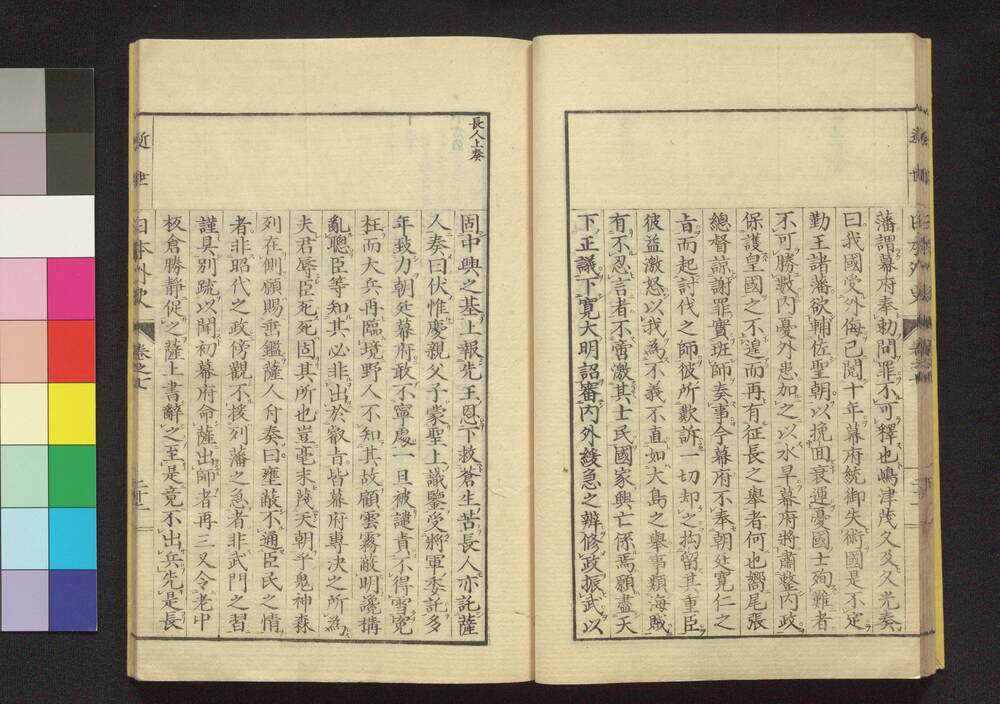 藩謂幕府奉勅問罪不可釋也嶋津茂久及久光奏
曰我國受外侮已閲十年幕府統御失術國是不定
勤王諸藩欲輔佐聖朝以挽囬衰運憂國士殉難者
不可勝數内憂外患加之以水旱幕府將肅整内政
保護皇國之不遑而再有征長之舉者何也嚮尾張
總督諒謝罪實班師奏事今幕府不奉朝廷寛仁之
旨而起討伐之師彼所歎訴一切却之拘留其重臣
彼益激怒以我為不義不直如大島之舉事類海賊
有不忍言者不啻激其士民國家興亡係焉願盡天
下正議下寛大明詔審内外緩急之辨修政振武以
近世日本外史
卷之七
長人上奏
固中興之基上報先王恩下救蒼生苦長人亦託薩
人奏曰伏惟慶親父子蒙聖上識鑒受將軍委託多
年致力朝廷幕府敢不寧處一旦被譴責不得雪寃
枉而大兵再臨境野人不知其故顧雲霧蔽明讒搆
亂聰臣等知其必非出於叡旨皆幕府專決之所為
夫君辱臣死死固其所也豈毫末怨天朝乎鬼神森
列在側願賜垂鑑薩人付奏曰壅蔽不通臣民之情
者非昭代之政傍觀不援列藩之急者非武門之習
謹具別疏以聞初幕府命薩出師者再三又令老中
板倉勝靜促之薩上書辭之至是竟不出兵先是長
近世日本外史
卷之七